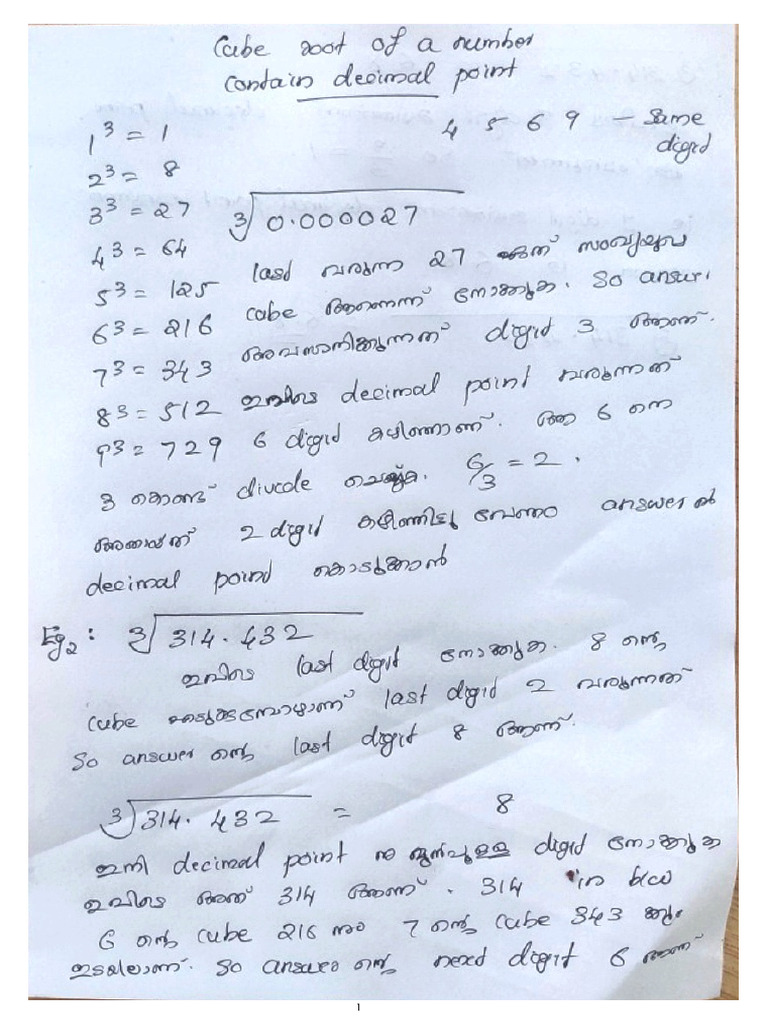 Cube root of a number
contain decimal point
1³ = 1
4 5 6 9 – same
digid
2³ = 8
3³ = 27
∛0.000027
4³ = 64
last വരുന്ന 27 ഏത് സംഖ്യയുടെ
5³ = 125
cube ആണെന്ന് നോക്കുക. So answer
6³ = 216
അവസാനിക്കുന്നത് digid 3 ആണ്.
7³ = 343
8³ = 512
ഇവിടെ decimal point വരുന്നത്
9³ = 729
6 digid കഴിഞ്ഞാണ്. ആ 6 നെ
3 കൊണ്ട് divide ചെയ്യുക. 6/3 = 2.
അതായത് 2 digid കഴിഞ്ഞിട്ടു വേണം answer ൽ
decimal point കൊടുക്കാൻ
Eg₂ : ∛314.432
ഇവിടെ last digit നോക്കുക. 8 ന്റെ
cube എടുക്കുമ്പോഴാണ് last digid 2 വരുന്നത്
So answer ന്റെ last digit 8 ആണ്.
∛314.432 = 8
ഇനി decimal point നു മുൻപുള്ള digid നോക്കുക
ഇവിടെ അത് 314 ആണ്. 314 in b/w
6 ന്റെ cube 216 നും 7 ന്റെ cube 343 ക്കും
ഇടയിലാണ്. So answer ന്റെ next digit 6 ആണ്
1